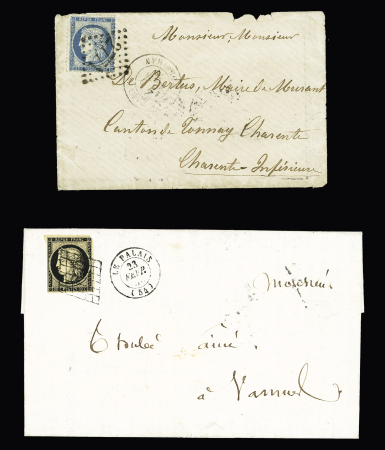 REPUB FRANC
Monsieur, Monsieur
De Bertus, Maire de Murant
Canton de Tonnay Charente
Charente-Inférieure
REPUB FRANC
LE PALAIS
23
FEVR
(54)
Monsieur
ainé
à Vannes